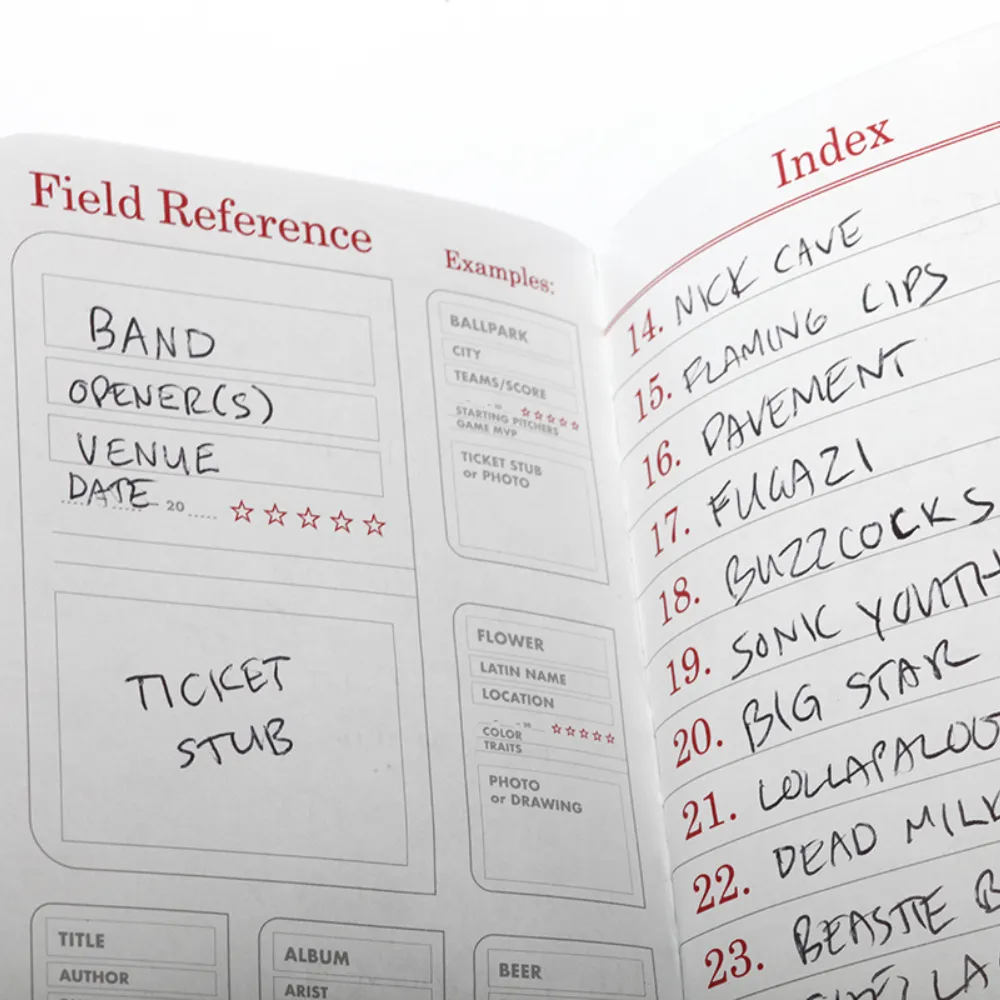 Field Reference
BAND
OPENER(S)
VENUE
DATE 20
TICKET
STUB
Examples:
BALLPARK
CITY
TEAMS/SCORE
STARTING PITCHERS
GAME MVP
TICKET STUB
or PHOTO
FLOWER
LATIN NAME
LOCATION
COLOR
TRAITS
PHOTO
or DRAWING
TITLE
AUTHOR
ALBUM
ARIST
BEER
Index
14. NICK CAVE
15. FLAMING LIPS
16. PAVEMENT
17. FUGAZI
18. BUZZCOCKS
19. SONIC YOUTH
20. BIG STAR
21. LOLLAPALOO
22. DEAD MILK
23. BEASTIE B